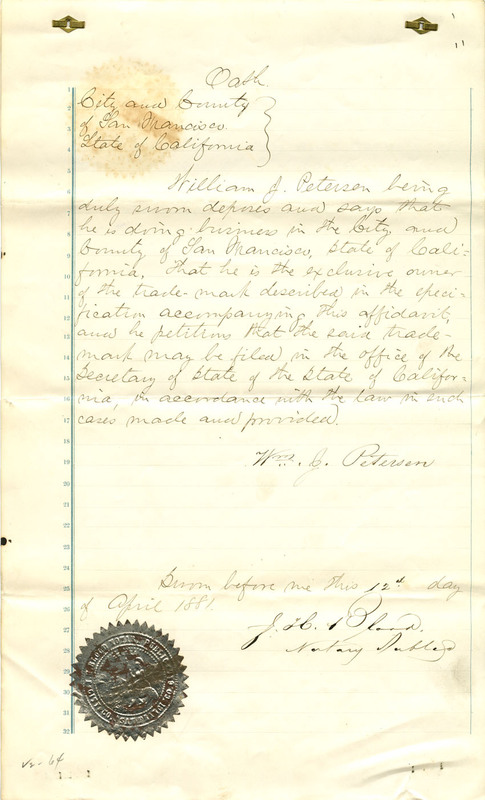 Oath.
City and County
of San Francisco.
State of California
William J. Petersen being
duly sworn deposes and says that
he is doing business in the City and
County of San Francisco, State of Cali-
fornia. That he is the exclusive owner
of the trade-mark described in the speci-
fication accompanying this affidavit,
and he petitions that the said trade-
mark may be filed in the office of the
Secretary of State of the State of Califor-
nia, in accordance with the law in such
cases made and provided.
Wm. J. Petersen
Sworn before me this 12th day
of April 1881.
J. H. Blood
Notary Public
1
2
3
4
5
6
7
8
9
10
11
12
13
14
15
16
17
18
19
20
21
22
23
24
25
26
27
28
29
30
31
32